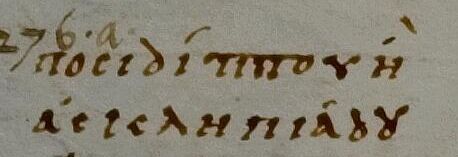 276.a
ποσιδίππου ἢ
ἀσκληπιάδου